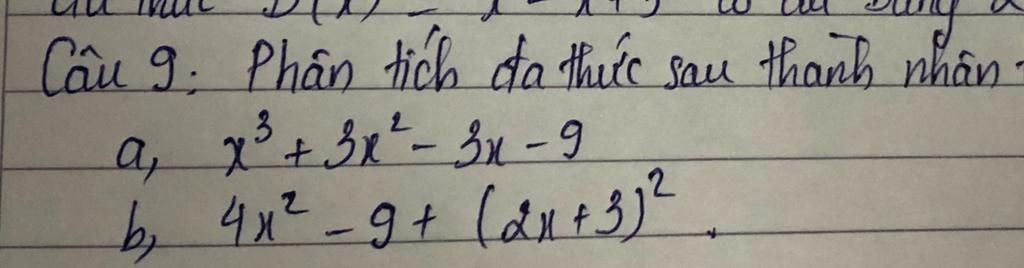 Câu 9: Phân tích đa thức sau thành nhân
a, x³ + 3x² - 3x - 9
b, 4x² - 9 + (2x + 3)².